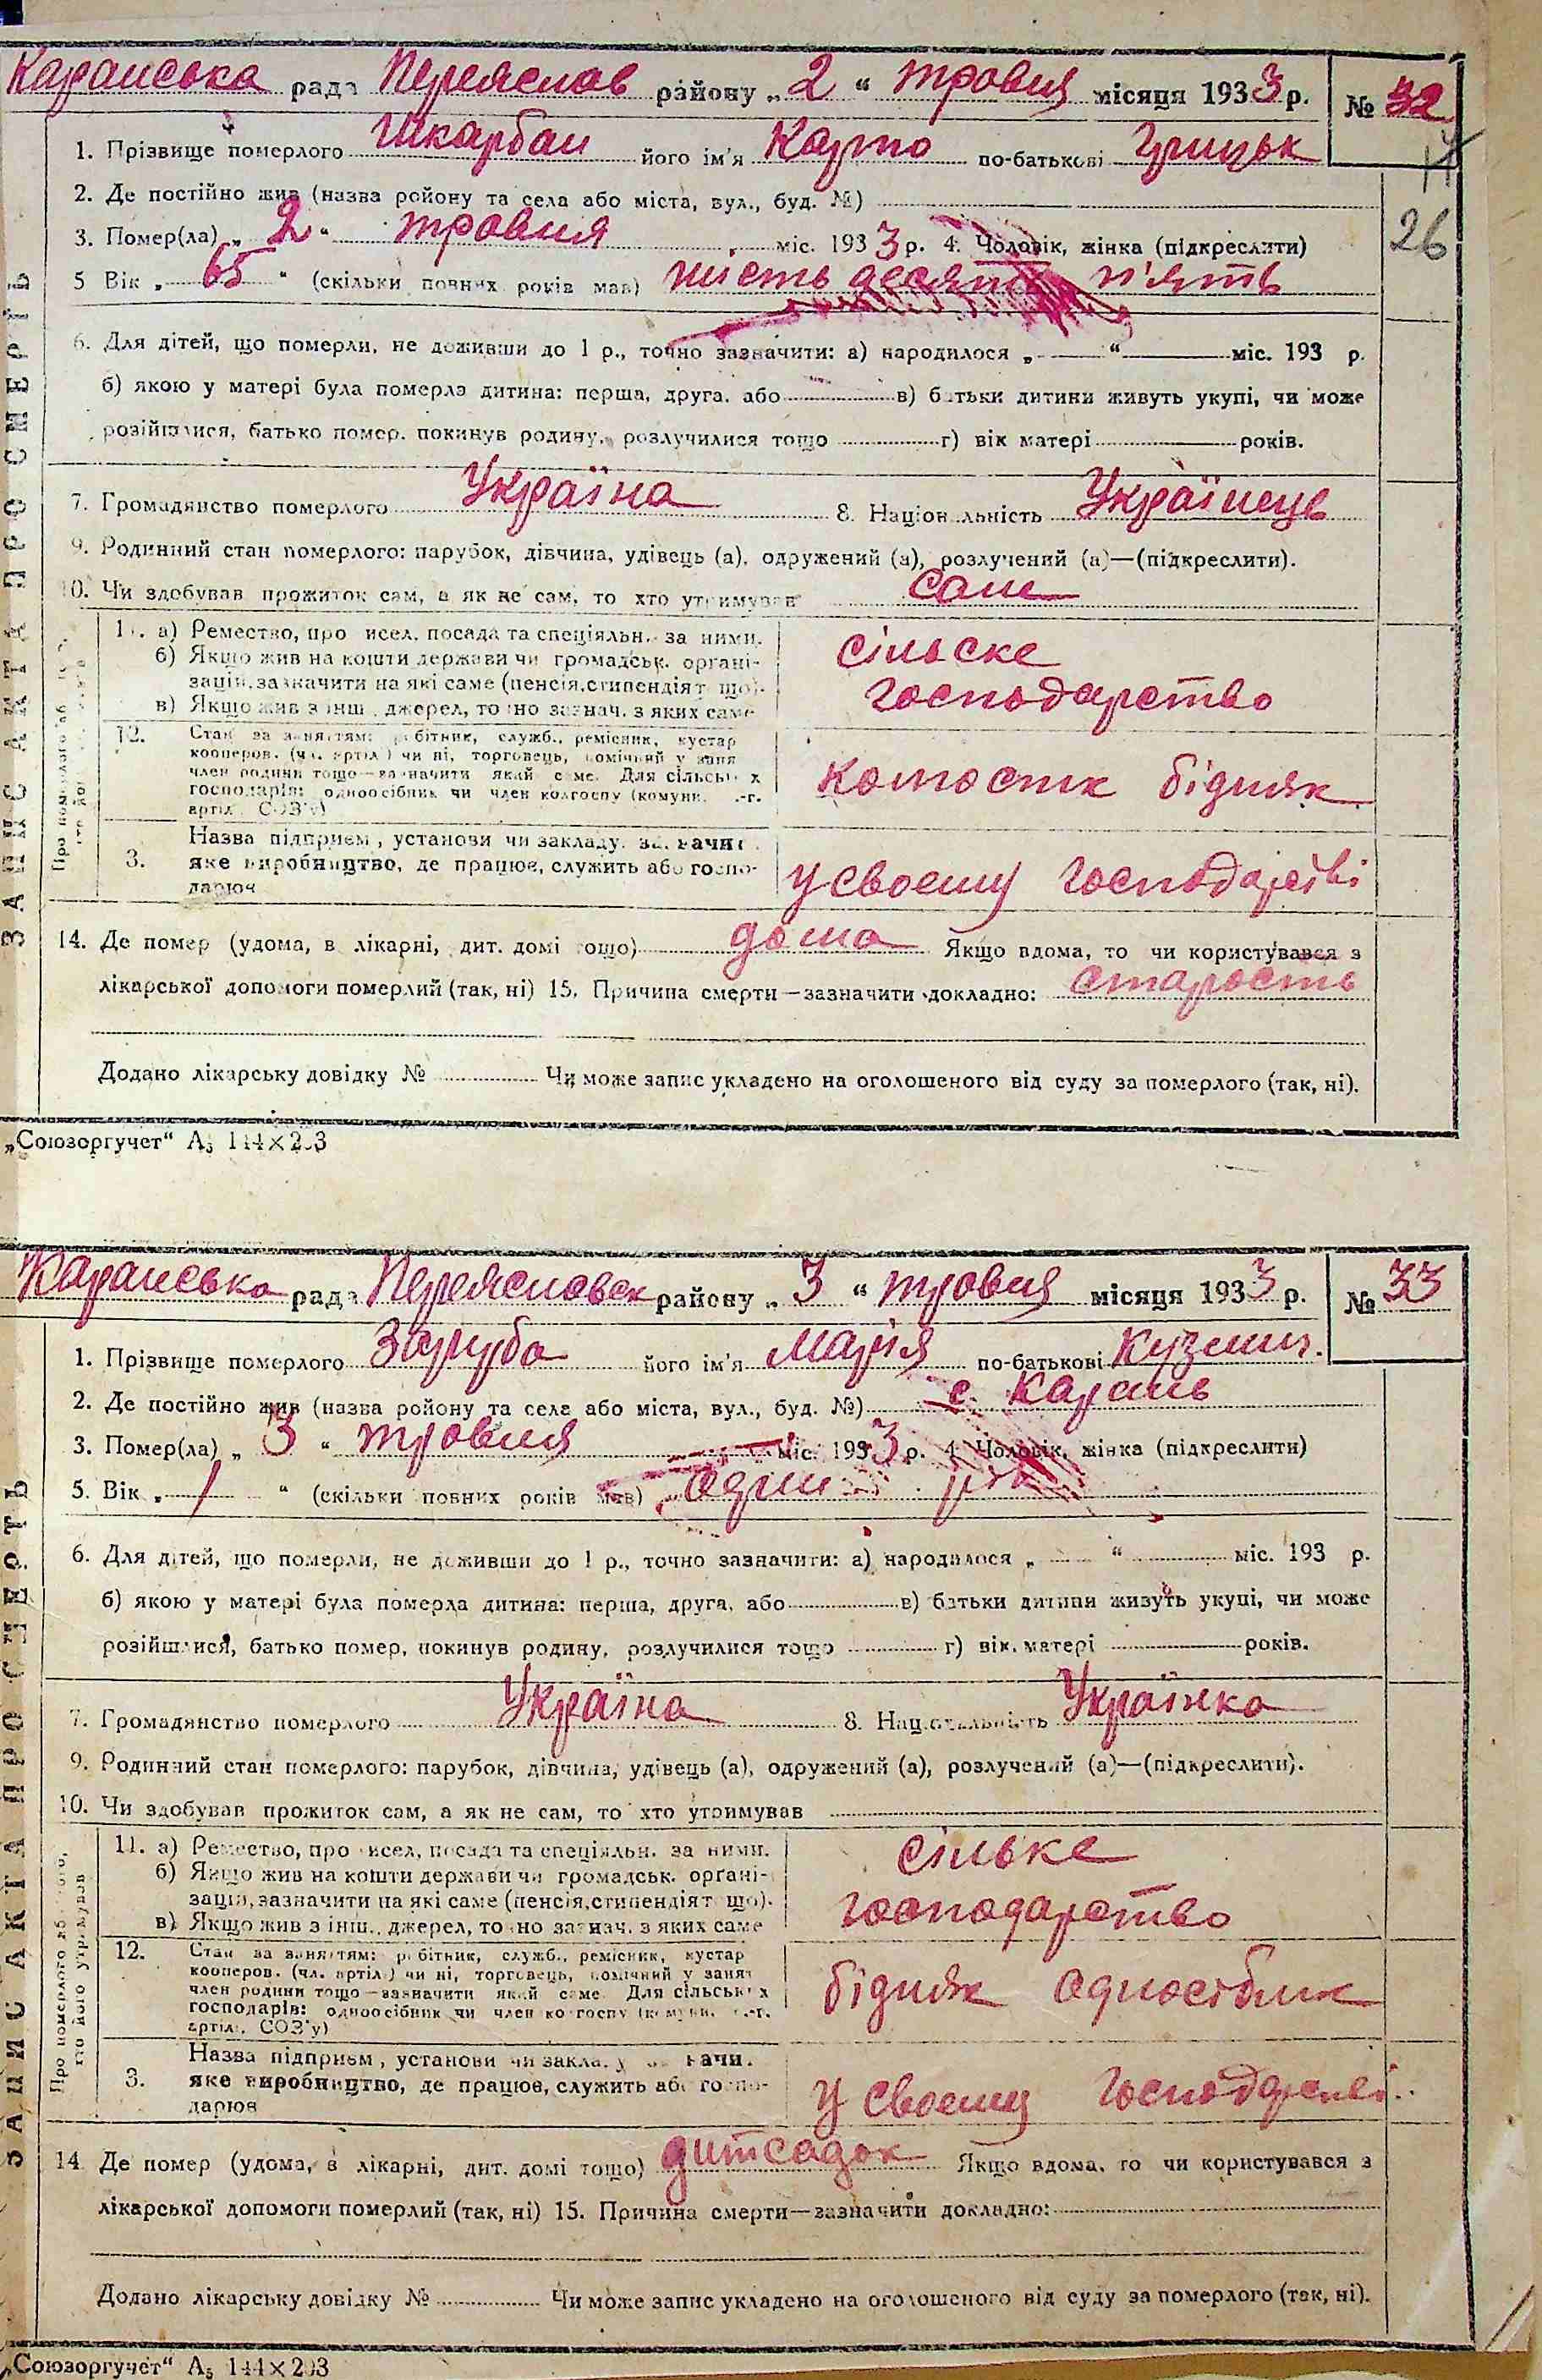 Каранська рада Переяслав району „2“ травня місяця 1933 р. № 32
1. Прізвище померлого Шкарбан його ім'я Карпо по-батькові Грицьк
2. Де постійно жив (назва району та села або міста, вул., буд. №)
26
3. Помер(ла) „2“ травня міс. 1933 р. 4. Чоловік, жінка (підкреслити)
5 Вік „65“ (скільки повних років мав) шість десять п'ять
6. Для дітей, що померли, не доживши до 1 р., точно зазначити: а) народилося „ “ міс. 193 р.
б) якою у матері була померла дитина: перша, друга, або в) батьки дитини живуть укупі, чи може
розійшлися, батько помер, покинув родину, розлучилися тощо г) вік матері років.
7. Громадянство померлого Україна 8. Національність Українець
9. Родинний стан померлого: парубок, дівчина, удівець (а), одружений (а), розлучений (а)—(підкреслити).
10. Чи здобував прожиток сам, а як не сам, то хто утримував сам
11. а) Ремество, про исел, посада та спеціяльн. за ними.
б) Якщо жив на кошти держави чи громадськ. органі-
зацій, зазначити на які саме (пенсія, стипендія т що).
в) Якщо жив з інш. джерел, точно зазнач. з яких саме
сільске
господарство
12. Стан за заняттям: робітник, служб., ремісник, кустар
кооперов. (чл. артіл.) чи ні, торговець, помічний у занят
член родини тощо—зазначити який саме. Для сільськ х
господарів: одноосібник чи член колгоспу (комуни, с.-г.
артіл. СОЗ'у)
колгоспк бідняк
3. Назва підприєм., установи чи закладу, зазначит
яке виробництво, де працює, служить або госпо-
дарює
у своему господарстві
14. Де помер (удома, в лікарні, дит. домі тощо) дома Якщо вдома, то чи користувався з
лікарської допомоги померлий (так, ні) 15. Причина смерти—зазначити докладно: старость
Додано лікарську довідку № Чи може запис укладено на оголошеного від суду за померлого (так, ні).
„Союзоргучет“ А5 144×203
ЗАПИС АКТА ПРО СМЕРТЬ
Каранська рада Переяславск району „3“ травня місяця 1933 р. № 33
1. Прізвище померлого Заруба його ім'я Марія по-батькові Кузмин.
2. Де постійно жив (назва району та села або міста, вул., буд. №) с. Карань
3. Помер(ла) „3“ травня міс. 1933 р. 4. Чоловік, жінка (підкреслити)
5. Вік „1“ (скільки повних років мав) один рік
6. Для дітей, що померли, не доживши до 1 р., точно зазначити: а) народилося „ “ міс. 193 р.
б) якою у матері була померла дитина: перша, друга, або в) батьки дитини живуть укупі, чи може
розійшлися, батько помер, покинув родину, розлучилися тощо г) вік матері років.
7. Громадянство померлого Україна 8. Національність Українка
9. Родинний стан померлого: парубок, дівчина, удівець (а), одружений (а), розлучений (а)—(підкреслити).
10. Чи здобував прожиток сам, а як не сам, то хто утримував
11. а) Ремество, про исел, посада та спеціяльн. за ними.
б) Якщо жив на кошти держави чи громадськ. органі-
зацій, зазначити на які саме (пенсія, стипендія т що).
в) Якщо жив з інш. джерел, точно зазнач. з яких саме
сільке
господарство
12. Стан за заняттям: робітник, служб., ремісник, кустар
кооперов. (чл. артіл.) чи ні, торговець, помічний у занят
член родини тощо—зазначити який саме. Для сільськ х
господарів: одноосібник чи член колгоспу (комуни, с.-г.
артіл. СОЗ'у)
бідняк одноосібник
3. Назва підприєм., установи чи закладу зазначи.
яке виробництво, де працює, служить або госпо-
дарює
у своему господарстві
14 Де помер (удома, в лікарні, дит. домі тощо) дитсадок Якщо вдома, то чи користувався з
лікарської допомоги померлий (так, ні) 15. Причина смерти—зазначити докладно:
Додано лікарську довідку № Чи може запис укладено на оголошеного від суду за померлого (так, ні).
„Союзоргучет“ А5 144×203
ЗАПИС АКТА ПРО СМЕРТЬ